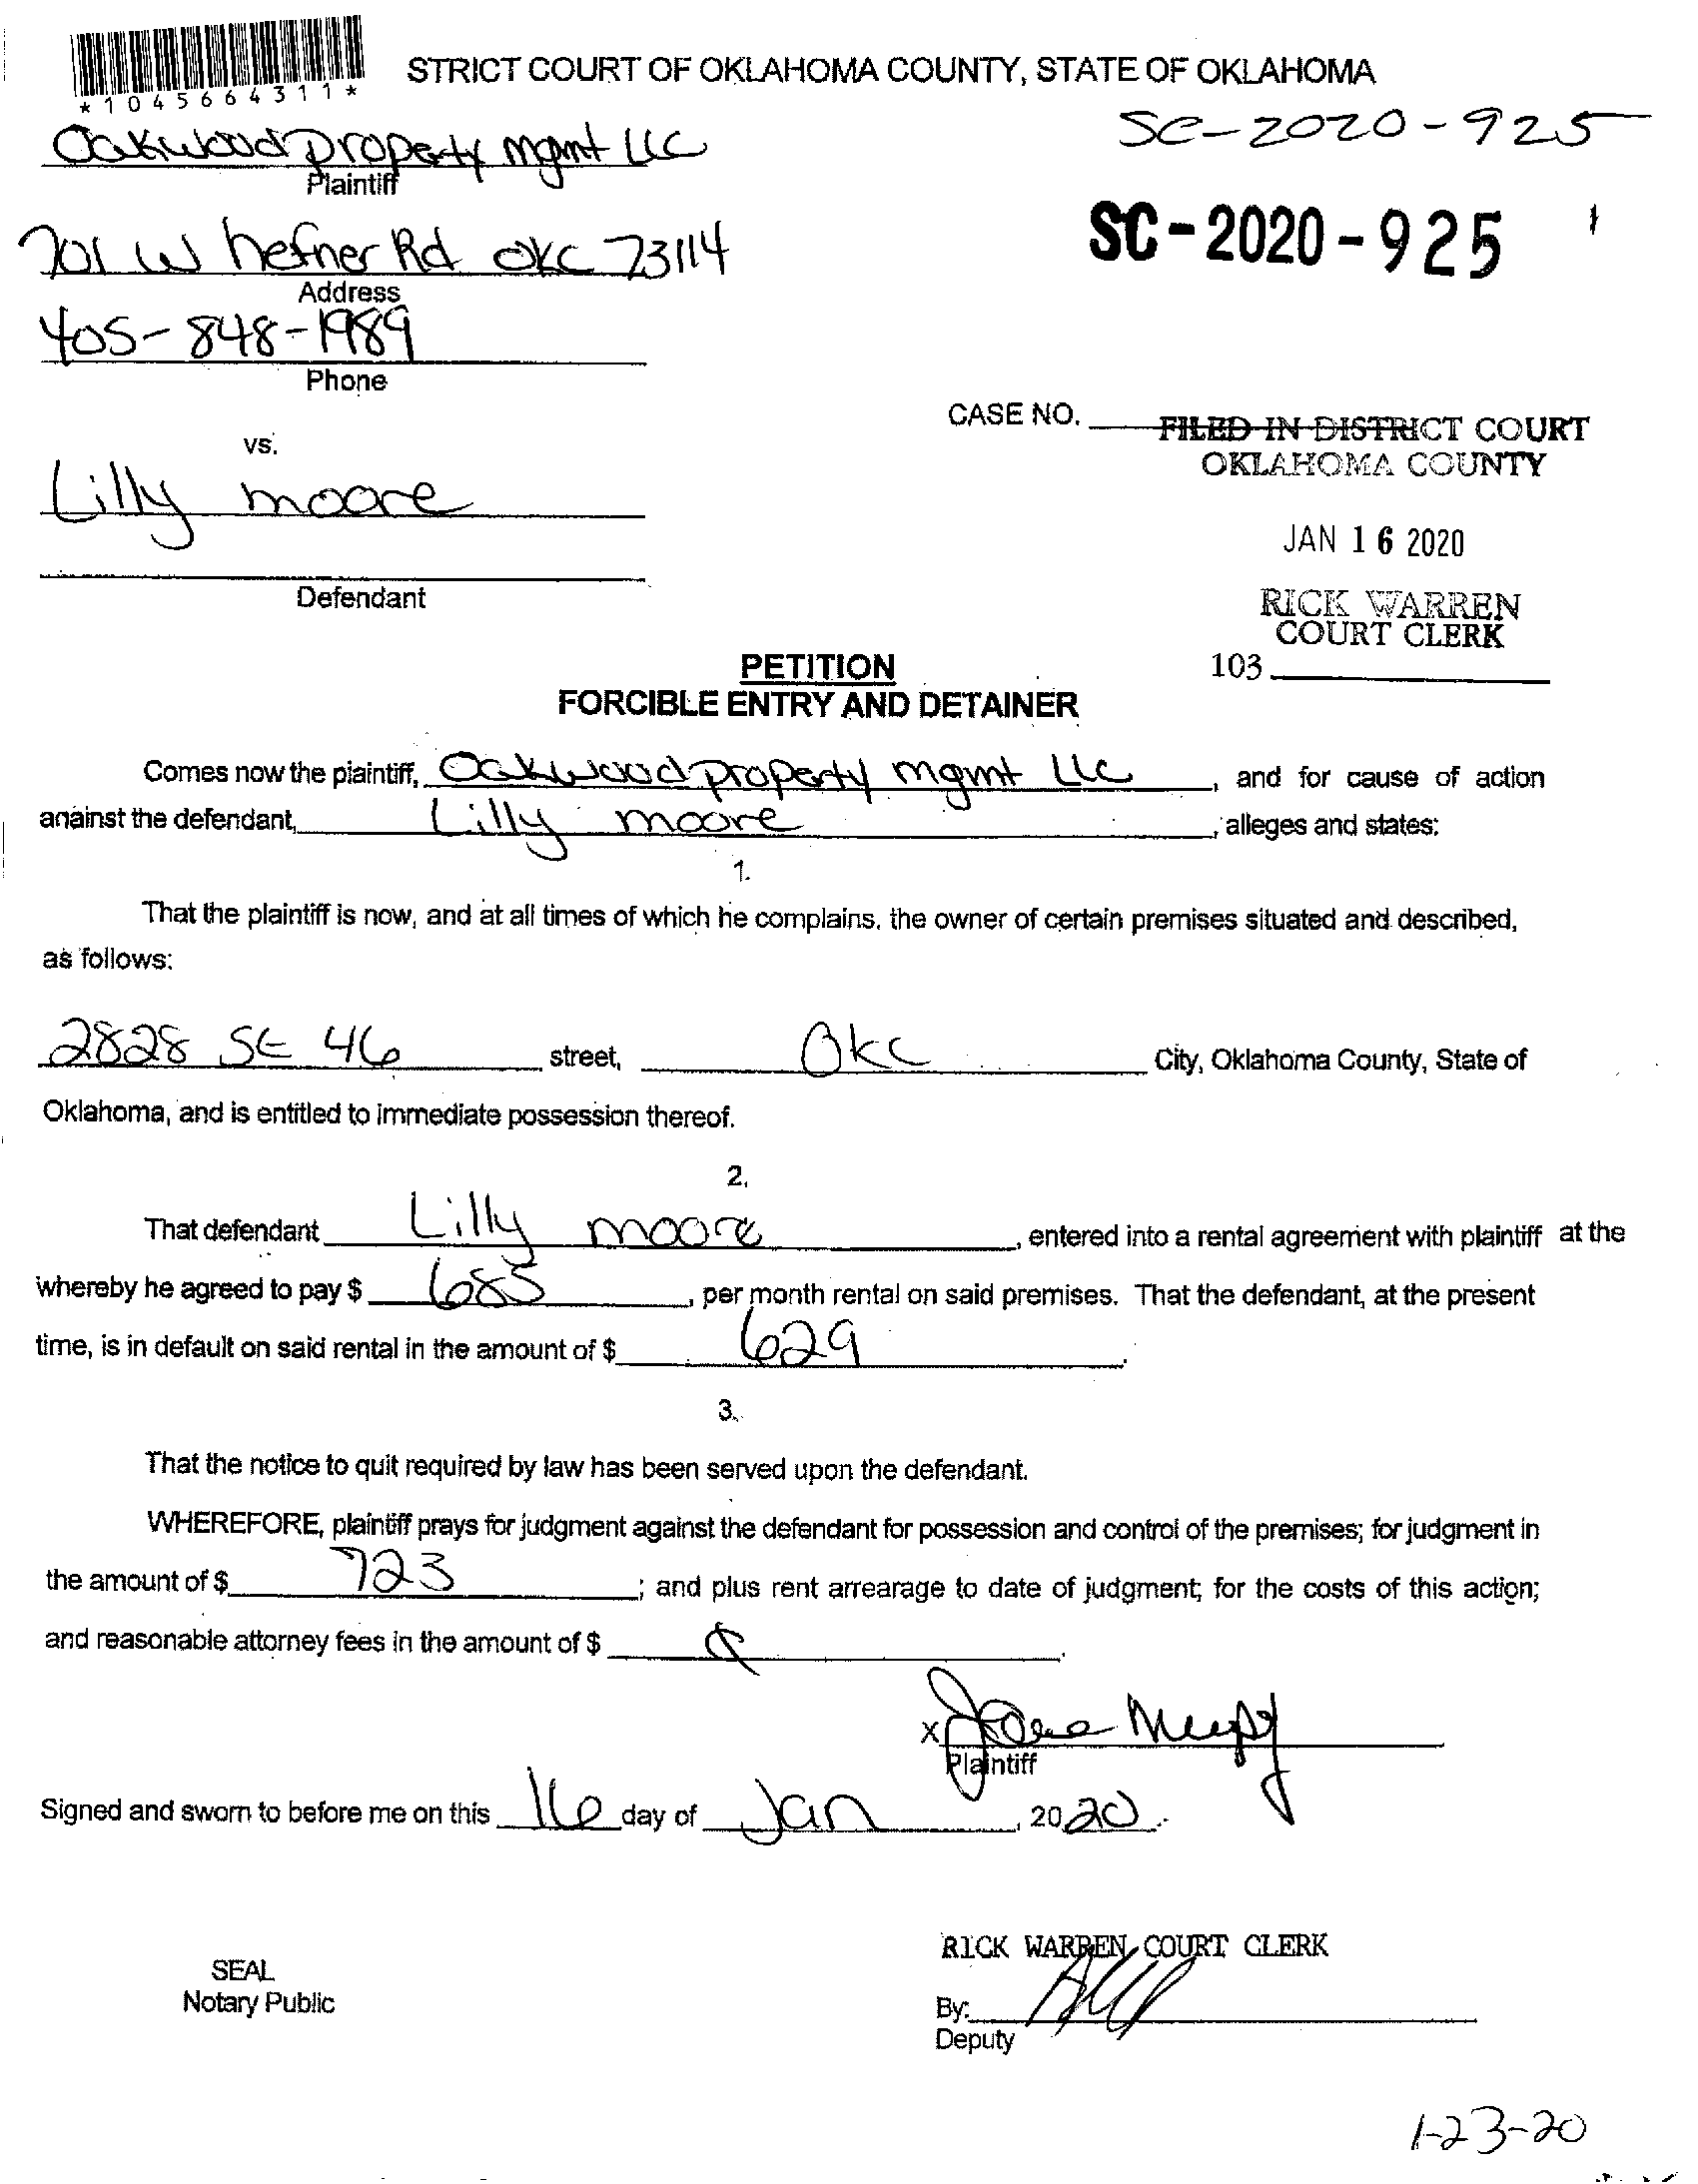 *1045664311*
STRICT COURT OF OKLAHOMA COUNTY, STATE OF OKLAHOMA
SC-2020-925
Oakwood property mgmt LLC
Plaintiff
SC-2020-925
701 W hefner Rd OKC 73114
Address
405-848-1989
Phone
CASE NO.
FILED IN DISTRICT COURT
OKLAHOMA COUNTY
vs.
Lilly moore
JAN 16 2020
Defendant
RICK WARREN
COURT CLERK
103
PETITION
FORCIBLE ENTRY AND DETAINER
Comes now the plaintiff, Oakwood property mgmt LLC, and for cause of action
against the defendant, Lilly moore, alleges and states:
1.
That the plaintiff is now, and at all times of which he complains, the owner of certain premises situated and described,
as follows:
2828 SE 46 street, OKC City, Oklahoma County, State of
Oklahoma, and is entitled to immediate possession thereof.
2.
That defendant Lilly moore, entered into a rental agreement with plaintiff at the
whereby he agreed to pay $ 685, per month rental on said premises. That the defendant, at the present
time, is in default on said rental in the amount of $ 629.
3.
That the notice to quit required by law has been served upon the defendant.
WHEREFORE, plaintiff prays for judgment against the defendant for possession and control of the premises; for judgment in
the amount of $ 723; and plus rent arrearage to date of judgment; for the costs of this action;
and reasonable attorney fees in the amount of $
x
Plaintiff
Signed and sworn to before me on this 16 day of Jan, 2020.
RICK WARREN, COURT CLERK
SEAL
Notary Public
By:
Deputy
1-23-20